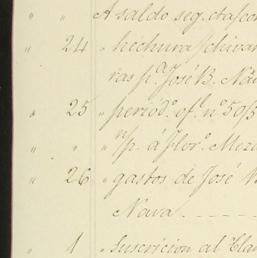 " " A saldo seg. cta. con
" 24 " hechura
ras p.ª José B. Na
" 25 " periód.º of.l nº 505
" " " p. á flor.º Mez
" 26 " gastos de José
Nava.
" 1 " Suscricion al Cla